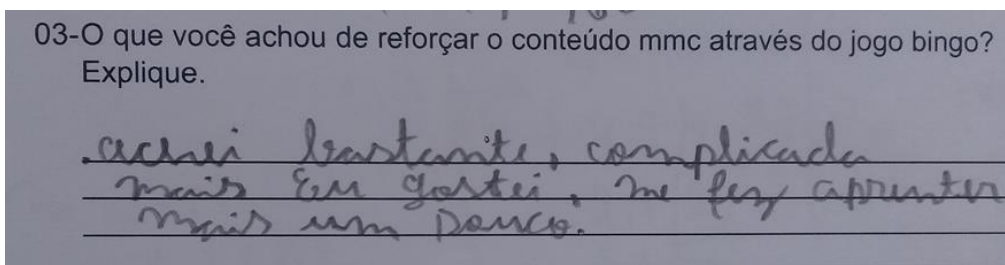 03-O que você achou de reforçar o conteúdo mmc através do jogo bingo?
Explique.
.achei bastante, complicada
mais Eu gostei, me fez aprenter
mais um pouco.